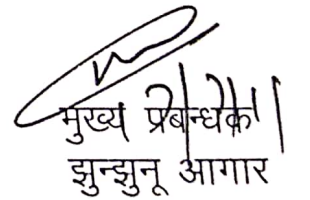 मुख्य प्रबन्धक
झुन्झुनू आगार